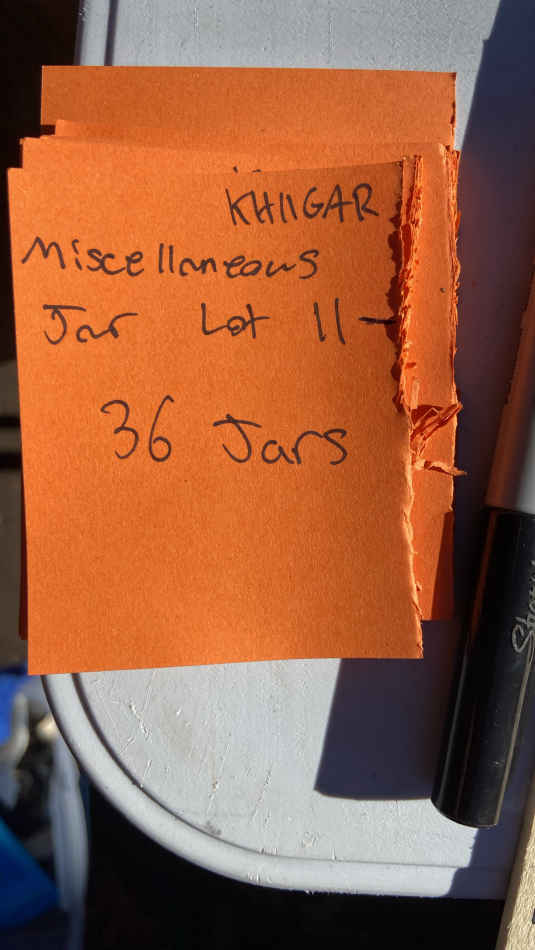 KH11GAR
Miscellaneous
Jar Lot 11-
36 Jars